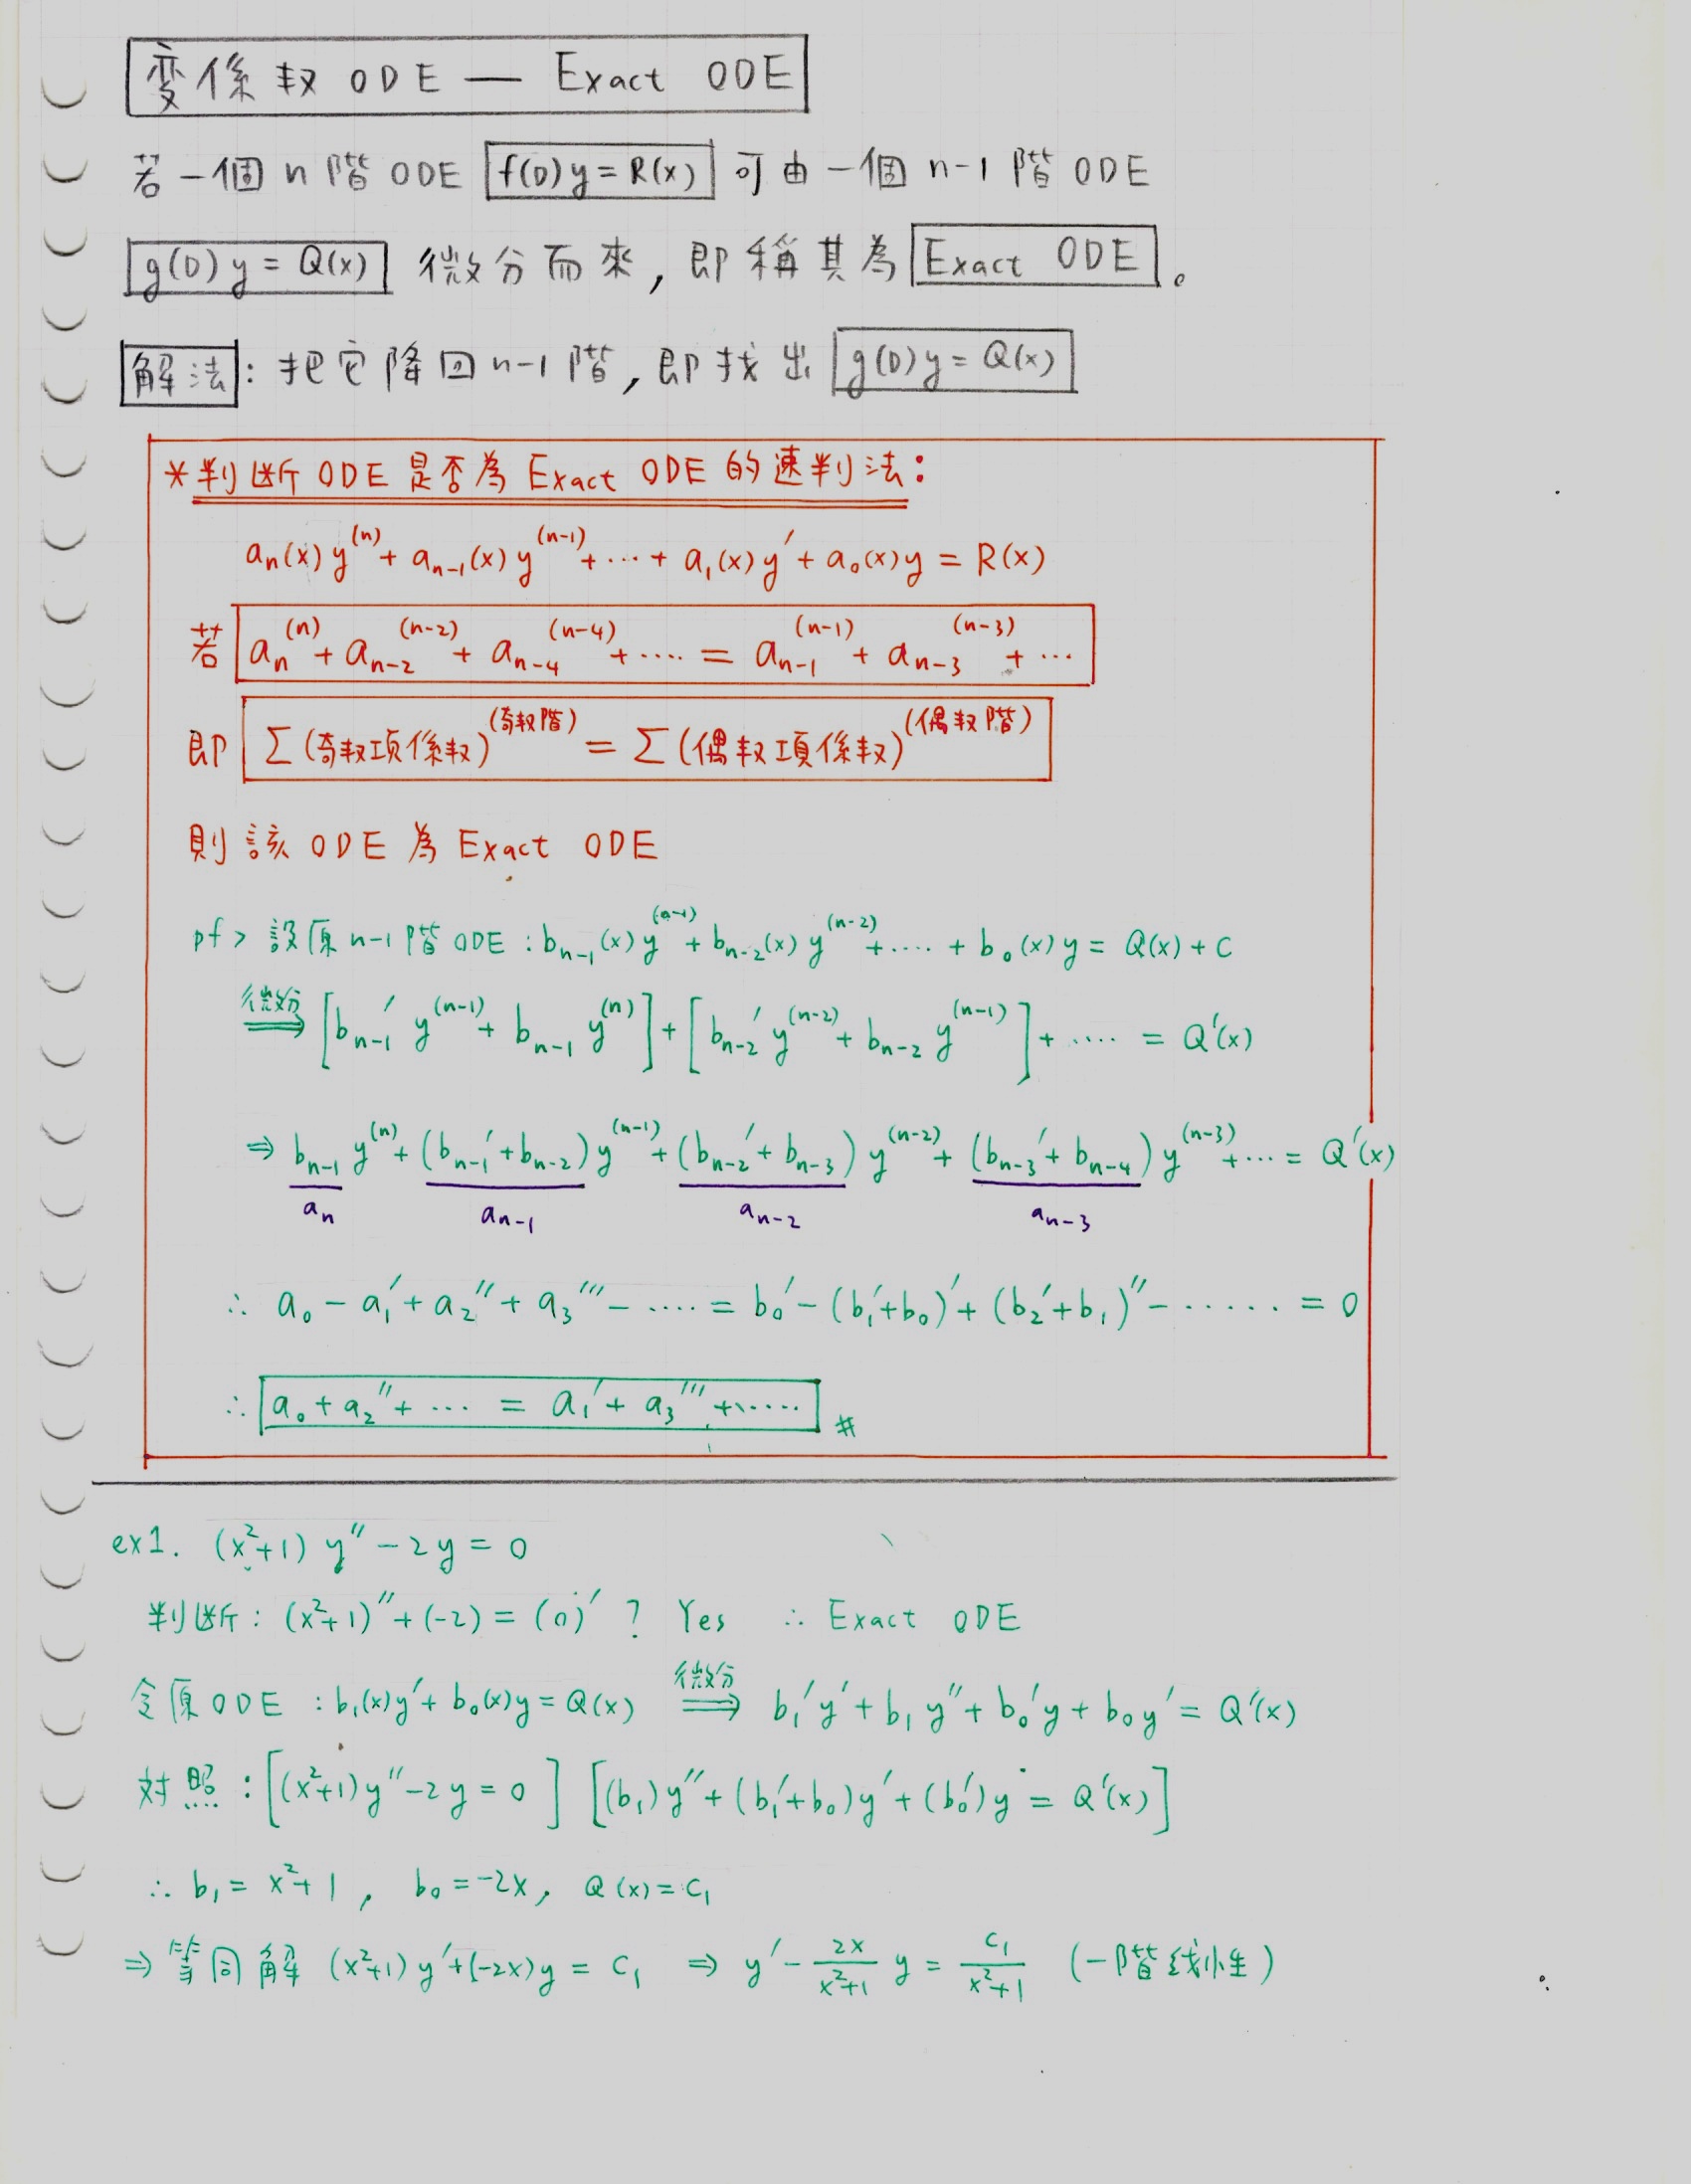 变係数 ODE — Exact ODE
若一個 n 階 ODE f(D)y = R(x) 可由一個 n-1 階 ODE
g(D)y = Q(x) 微分而來, 即稱其為 Exact ODE。
解法: 把它降回 n-1 階, 即找出 g(D)y = Q(x)
*判断 ODE 是否為 Exact ODE 的速判法:
aₙ(x)y⁽ⁿ⁾ + aₙ₋₁(x)y⁽ⁿ⁻¹⁾ + ⋯ + a₁(x)y′ + a₀(x)y = R(x)
若 aₙ⁽ⁿ⁾ + aₙ₋₂⁽ⁿ⁻²⁾ + aₙ₋₄⁽ⁿ⁻⁴⁾ + ⋯⋅ = aₙ₋₁⁽ⁿ⁻¹⁾ + aₙ₋₃⁽ⁿ⁻³⁾ + ⋯
即 Σ(奇数项係数)^(奇数階) = Σ(偶数項係数)^(偶数階)
則該 ODE 為 Exact ODE
pf> 設原 n-1 階 ODE : bₙ₋₁(x)y⁽ⁿ⁻¹⁾ + bₙ₋₂(x)y⁽ⁿ⁻²⁾ + ⋯⋅ + b₀(x)y = Q(x) + C
微分 ⟹ [bₙ₋₁′ y⁽ⁿ⁻¹⁾ + bₙ₋₁ y⁽ⁿ⁾] + [bₙ₋₂′ y⁽ⁿ⁻²⁾ + bₙ₋₂ y⁽ⁿ⁻¹⁾] + ⋯⋅ = Q′(x)
⇒ bₙ₋₁ y⁽ⁿ⁾ + (bₙ₋₁′ + bₙ₋₂)y⁽ⁿ⁻¹⁾ + (bₙ₋₂′ + bₙ₋₃)y⁽ⁿ⁻²⁾ + (bₙ₋₃′ + bₙ₋₄)y⁽ⁿ⁻³⁾ + ⋯ = Q′(x)
aₙ aₙ₋₁ aₙ₋₂ aₙ₋₃
∴ a₀ - a₁′ + a₂″ + a₃‴ - ⋯⋅ = b₀′ - (b₁′+b₀)′ + (b₂′+b₁)″ - ⋯⋯ = 0
∴ a₀ + a₂″ + ⋯ = a₁′ + a₃‴ + ⋯⋯ #
ex1. (x²+1) y″ - 2y = 0
判断: (x²+1)″ + (-2) = (0)′ ? Yes ∴ Exact ODE
令原 ODE : b₁(x)y′ + b₀(x)y = Q(x) 微分 ⟹ b₁′y′ + b₁y″ + b₀′y + b₀y′ = Q′(x)
对照 : [(x²+1)y″ - 2y = 0] [(b₁)y″ + (b₁′+b₀)y′ + (b₀′)y = Q′(x)]
∴ b₁ = x²+1, b₀ = -2x, Q(x) = C₁
⇒ 等同解 (x²+1)y′ + (-2x)y = C₁ ⇒ y′ - 2x/(x²+1) y = C₁/(x²+1) (一階线性)